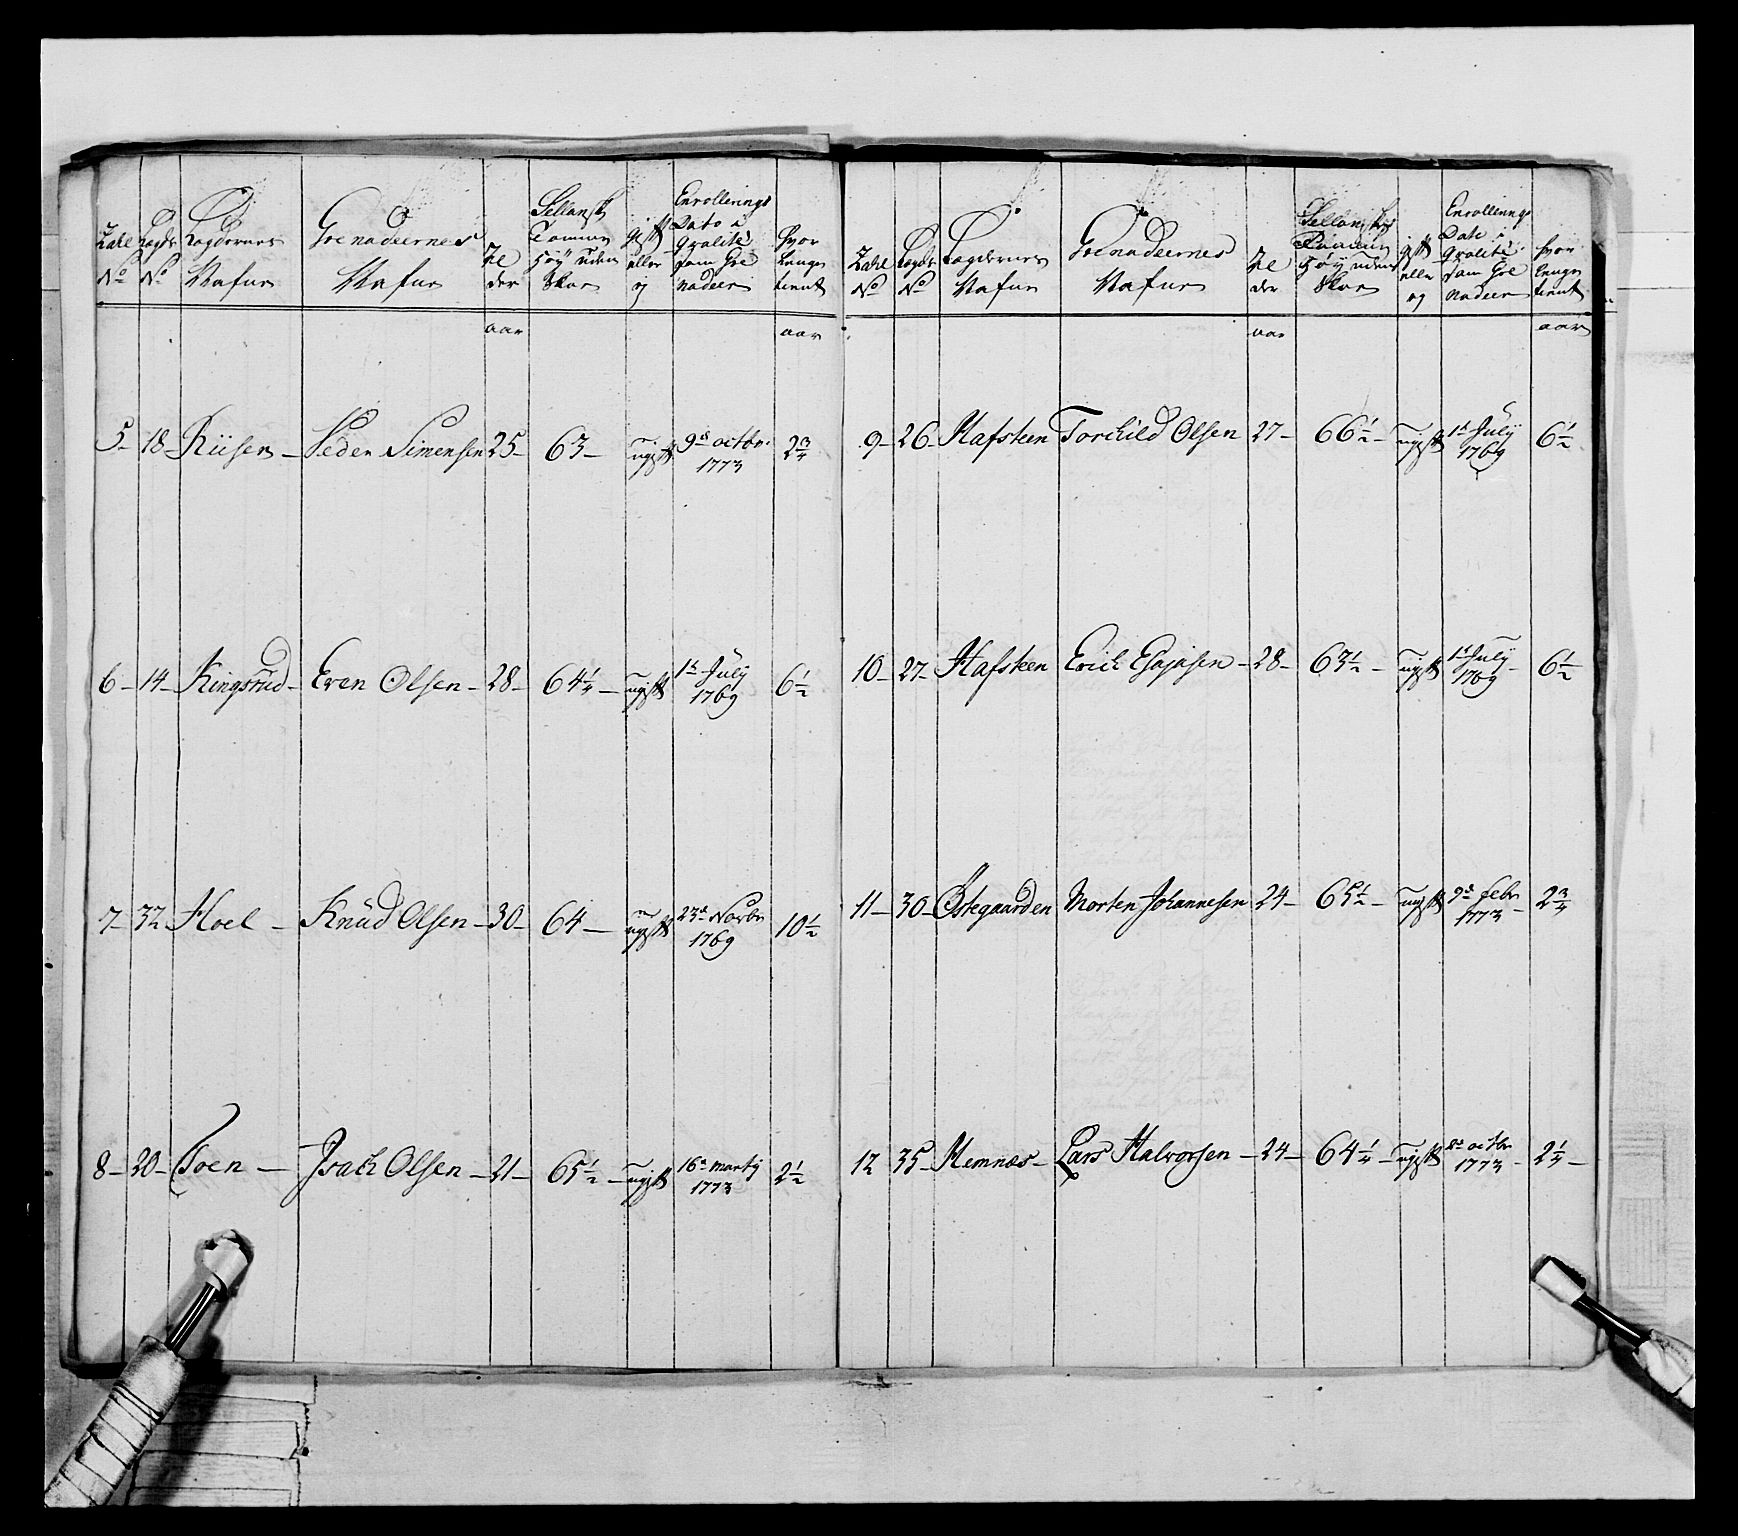 Zahl No
Lægds No
Lægdernes Nafn
Grenadeernes Nafn
Al der
Sellansk Tommer Höy uden Skoe
gift eller ey
Enrollerings Dato i Qvalité som Gre nadeer
hvor længe tient
aar
aar
5- 18- Riiser - Peder Simensen 25- 63- ugift 9de octbr. 1773 2 3/4
6- 14- Ringsrud- Even Olsen- 28- 64 1/4 - ugift 1te July 1769 6 1/2
7- 32 Hoel - Knud Olsen- 30- 64 - ugift 23de Novbr 1769 10 1/2
8- 20- Toen - Isach Olsen- 21- 65 1/2 - ugift 16de marty 1773 2 1/2
Zahl No
Lægds No
Lægdernes Nafn
Grenadeernes Nafn
Al der
Sellansk Tommer Höy uden Skoe
gift eller ey
Enrollerings Dato i Qvalité som Gre nadeer
hvor længe tient
aar
aar
9- 26- Hafsteen Torchild Olsen 27- 66 1/2 - ugift 1te July 1769 6 1/2
10- 27- Hafsteen Erich - 28- 63 1/2 - ugift 1te July 1769 - 6 1/2
11- 30- Østegaarden Morten Johannesen 24- 65 1/2 - ugift 9de febr 1773 - 2 3/4
12 35- Hemnæs- Lars Halvorsen- 24- 64 1/4 - ugift 8de octbr 1773 - 2 1/4 -